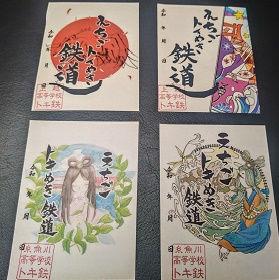 えちご
トキめき
鉄道
令和 年 月 日
高等学校
トキ鉄
えちご
トキめき
鉄道
令和 年 月 日
高等学校
トキ鉄
えちご
トキめき
鉄道
令和 年 月 日
糸魚川
高等学校
トキ鉄
えちご
トキめき
鉄道
令和 年 月 日
糸魚川
高等学校
トキ鉄